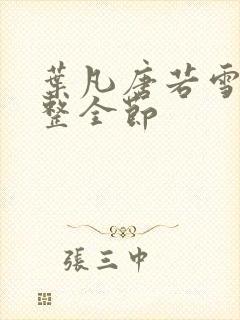 葉凡唐若雪
整全節
張三中